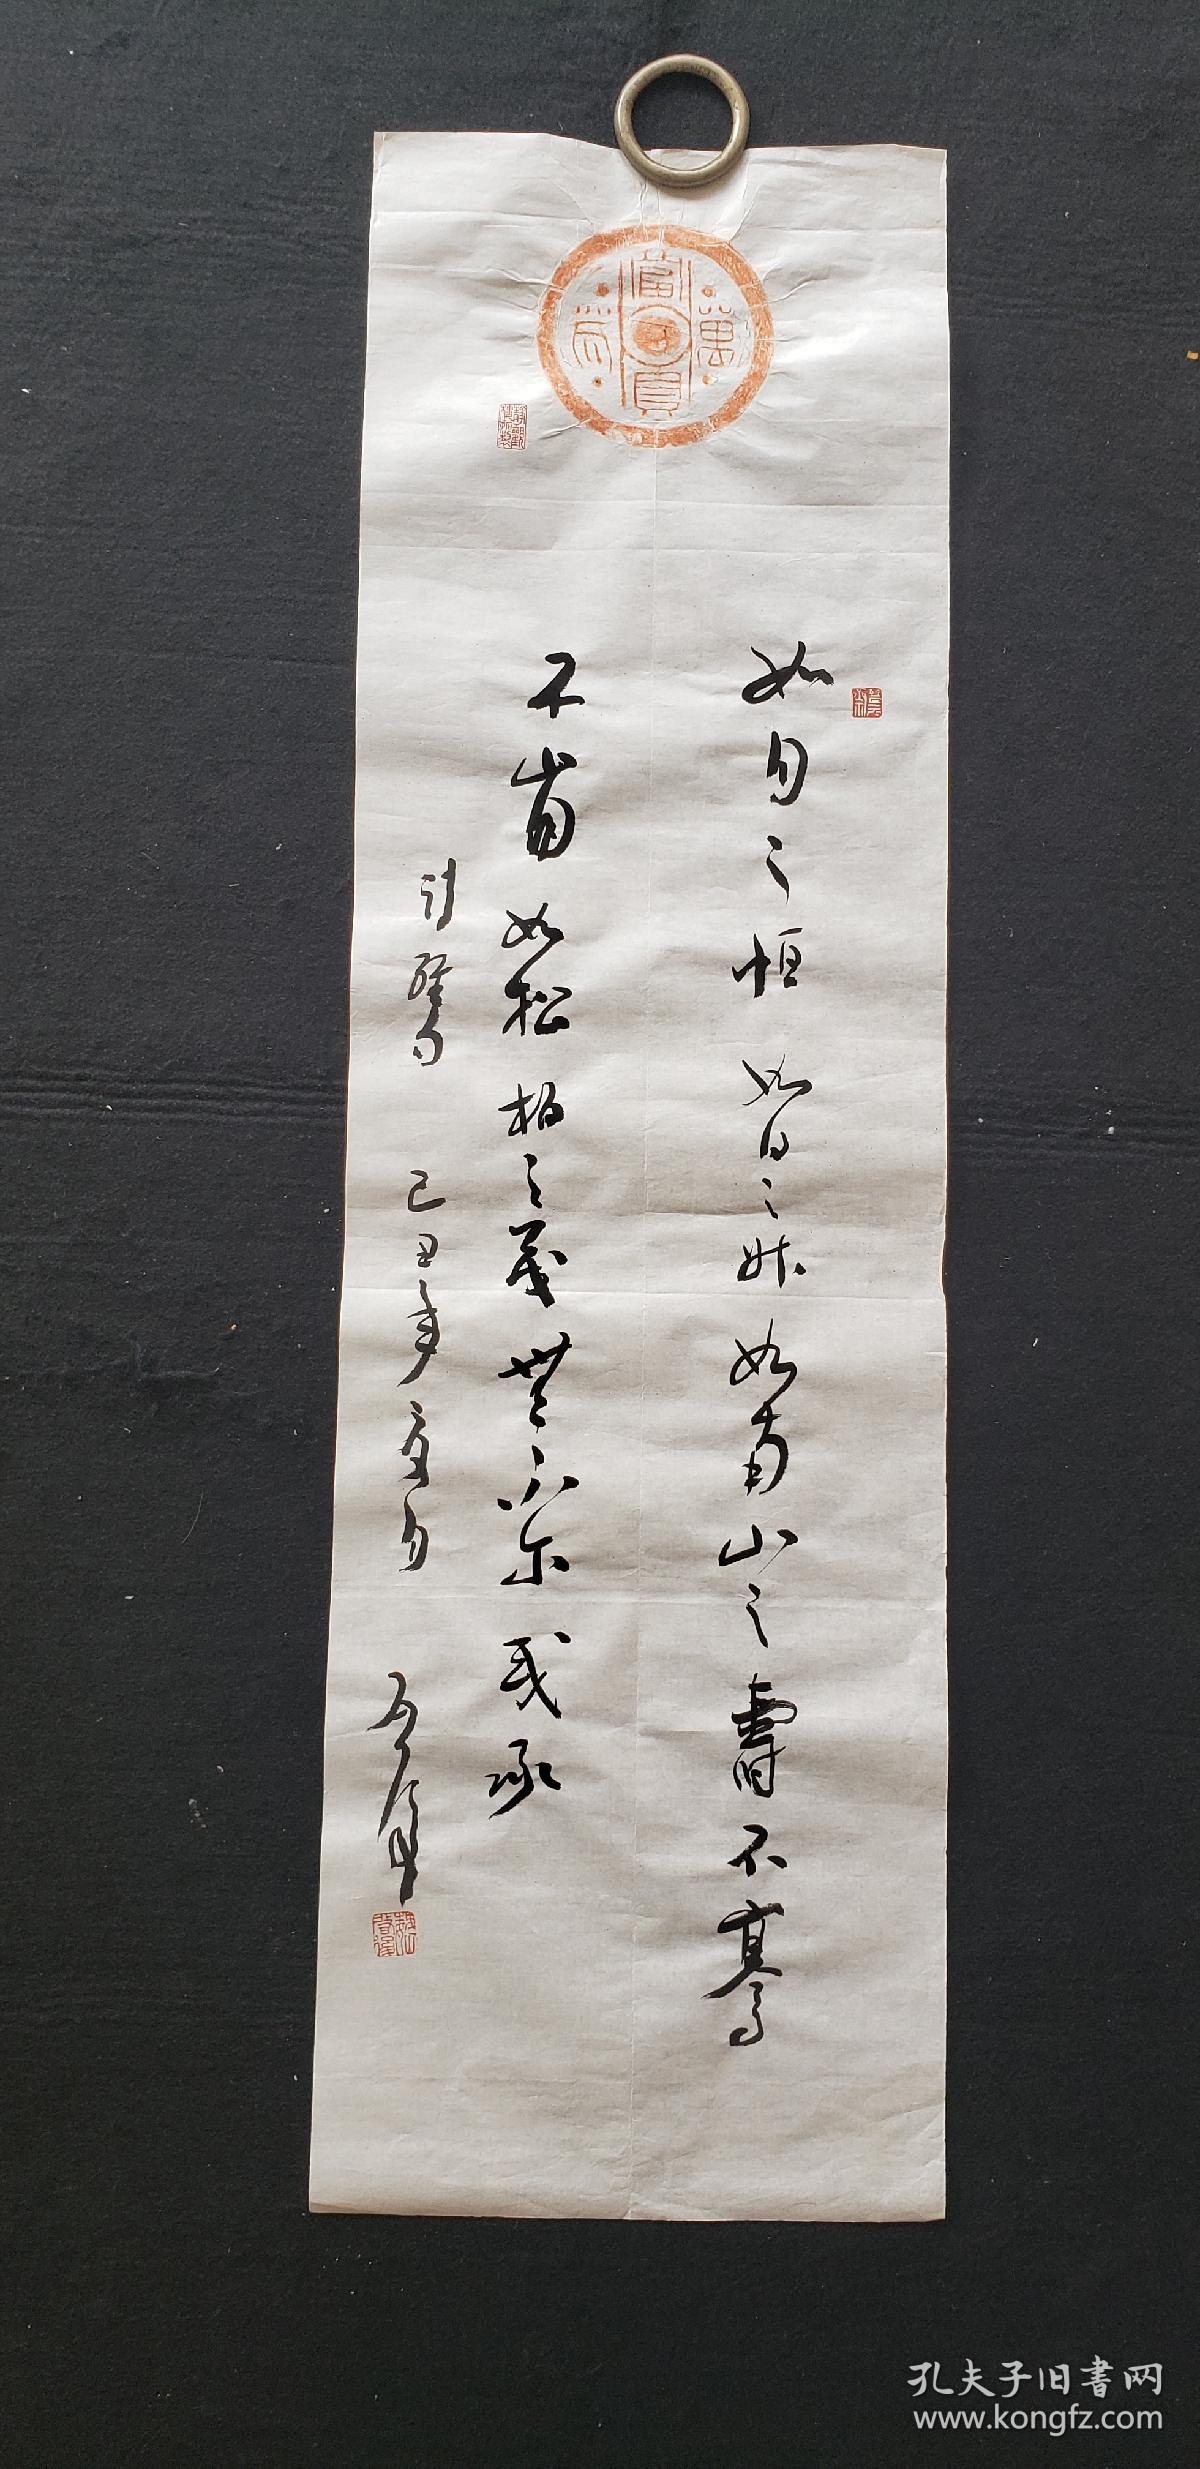 如月之恒如日之升如南山之壽不騫
不崩如松柏之茂無不爾或承
詩經句 己丑年夏月
孔夫子旧书网
www.kongfz.com